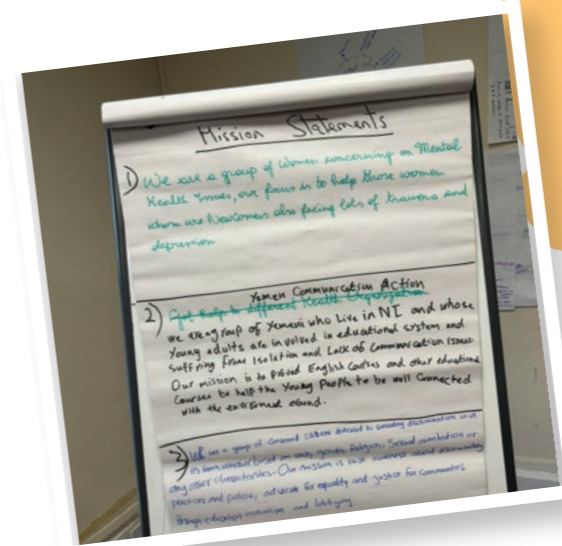 Mission Statements
1) We are a group of women concerning on Mental
Health Issues, our focus is to help those women
whom are Newcomers also facing lots of trauma and
depression
Yemen Communication Action
2) Get help to different Health Organization
we are group of Yemeni who Live in NI and whose
Young adults are involved in educational system and
suffring from Isolation and Lack of Communication issues
Our mission is to provid English Courses and other educational
Courses to help the Young People to be well Connected
with the around.
3) We are a group of concerned citizens dedicated to discrimination in all
its forms whether based on race, gender, Religion, Sexual or
any other characteristics. Our mission is raise about
practices and policies, advocate for equality and justice for Communities
through education and lobbying